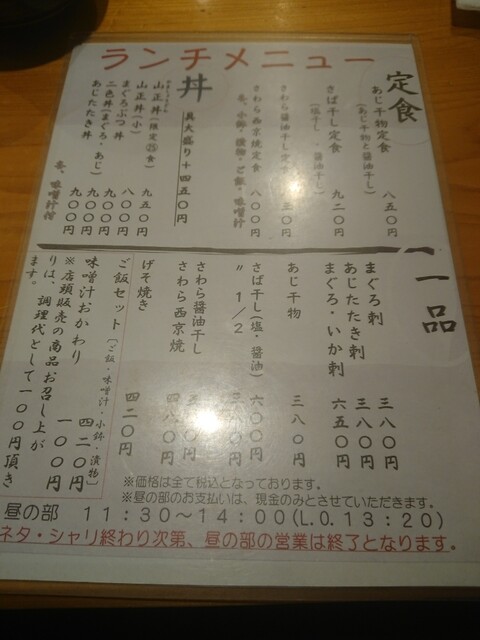 ランチメニュー
定食
あじ干物定食 八五〇円
(あじ干物と醤油干し)
さば干し定食 九二〇円
さわら醤油干し定食
さわら西京焼定食 八〇〇円
各、小鉢・漬物・ご飯・味噌汁
丼
具大盛り+四五〇円
山正丼(限定25食) 九五〇円
山正丼(小) 八〇〇円
まぐろぶつ丼 九〇〇円
二色丼(まぐろ・あじ) 九〇〇円
あじたたき丼 九〇〇円
各、味噌汁付
一品
まぐろ刺 三八〇円
あじたたき刺 三八〇円
まぐろ・いか刺 六五〇円
あじ干物 三八〇円
さば干し(塩・醤油) 六〇〇円
〃 1/2
さわら醤油干し
さわら西京焼 四八〇円
げそ焼き 四二〇円
ご飯セット[ご飯・味噌汁・小鉢・漬物] 四二〇円
味噌汁おかわり 一〇〇円
※店頭販売の商品お召し上が
りは、調理代として一〇〇円頂き
ます。
※価格は全て税込となっております。
※昼の部のお支払いは、現金のみとさせていただきます。
昼の部 11:30～14:00(L.O.13:20)
ネタ・シャリ終わり次第、昼の部の営業は終了となります。